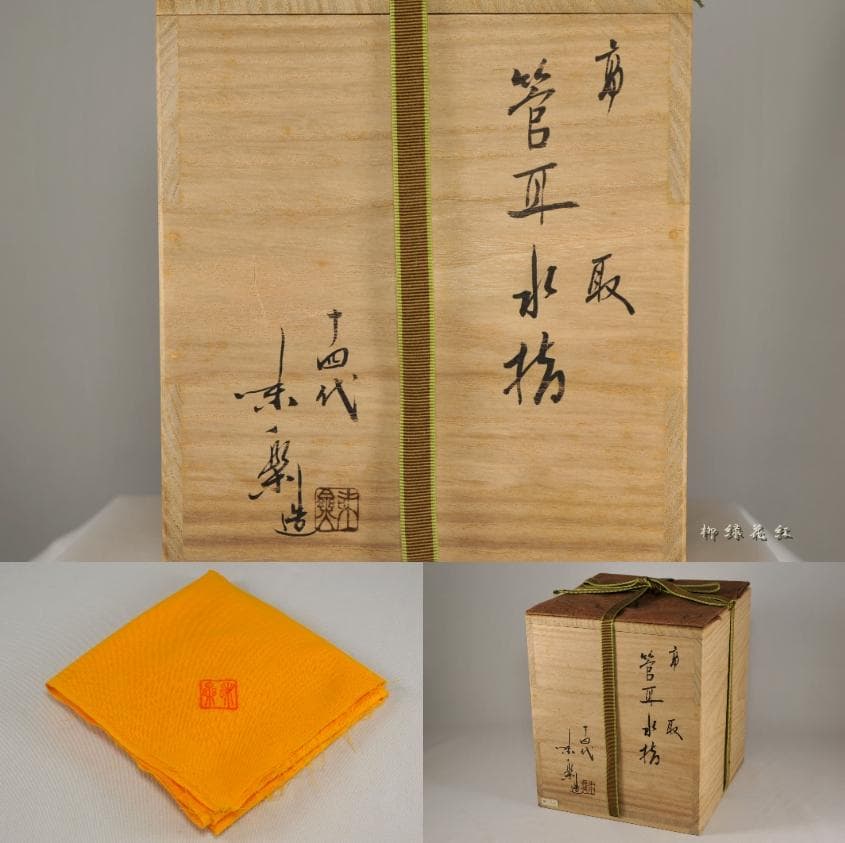 高取
管耳水指
十四代
味楽造
柳緑花紅
高取
管耳水指
十四代
味楽造